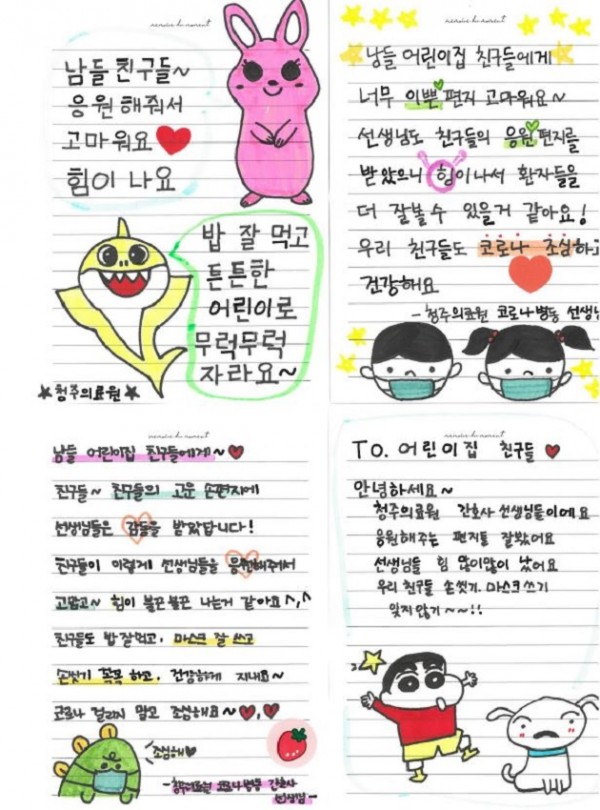 남들 친구들~
응원해줘서
고마워요
힘이 나요
밥 잘 먹고
튼튼한
어린이로
무럭무럭
자라요~
청주의료원
남들 어린이집 친구들에게
너무 이쁜 편지 고마워요~
선생님도 친구들의 응원편지를
받았으니 힘이나서 환자들을
더 잘볼 수 있을거 같아요!
우리 친구들도 코로나 조심하고
건강해요
-청주의료원 코로나병동 선생님
남들 어린이집 친구들에게~
친구들~ 친구들의 고운 손편지에
선생님들은 감동을 받았답니다!
친구들이 이렇게 선생님들을 응원해주어서
고맙고~ 힘이 불끈불끈 나는거 같아요^,^
친구들도 밥 잘먹고, 마스크 잘 쓰고
손씻기 꼭꼭 하고, 건강하게 지내요~
코로나 걸리지 말고 조심해요~
조심해
-청주의료원 코로나병동 간호사
선생님-
To. 어린이집 친구들
안녕하세요~
청주의료원 간호사 선생님들이에요
응원해주는 편지를 잘봤어요
선생님들 힘 많이많이 났어요
우리 친구들 손씻기, 마스크쓰기
잊지않기~~!!